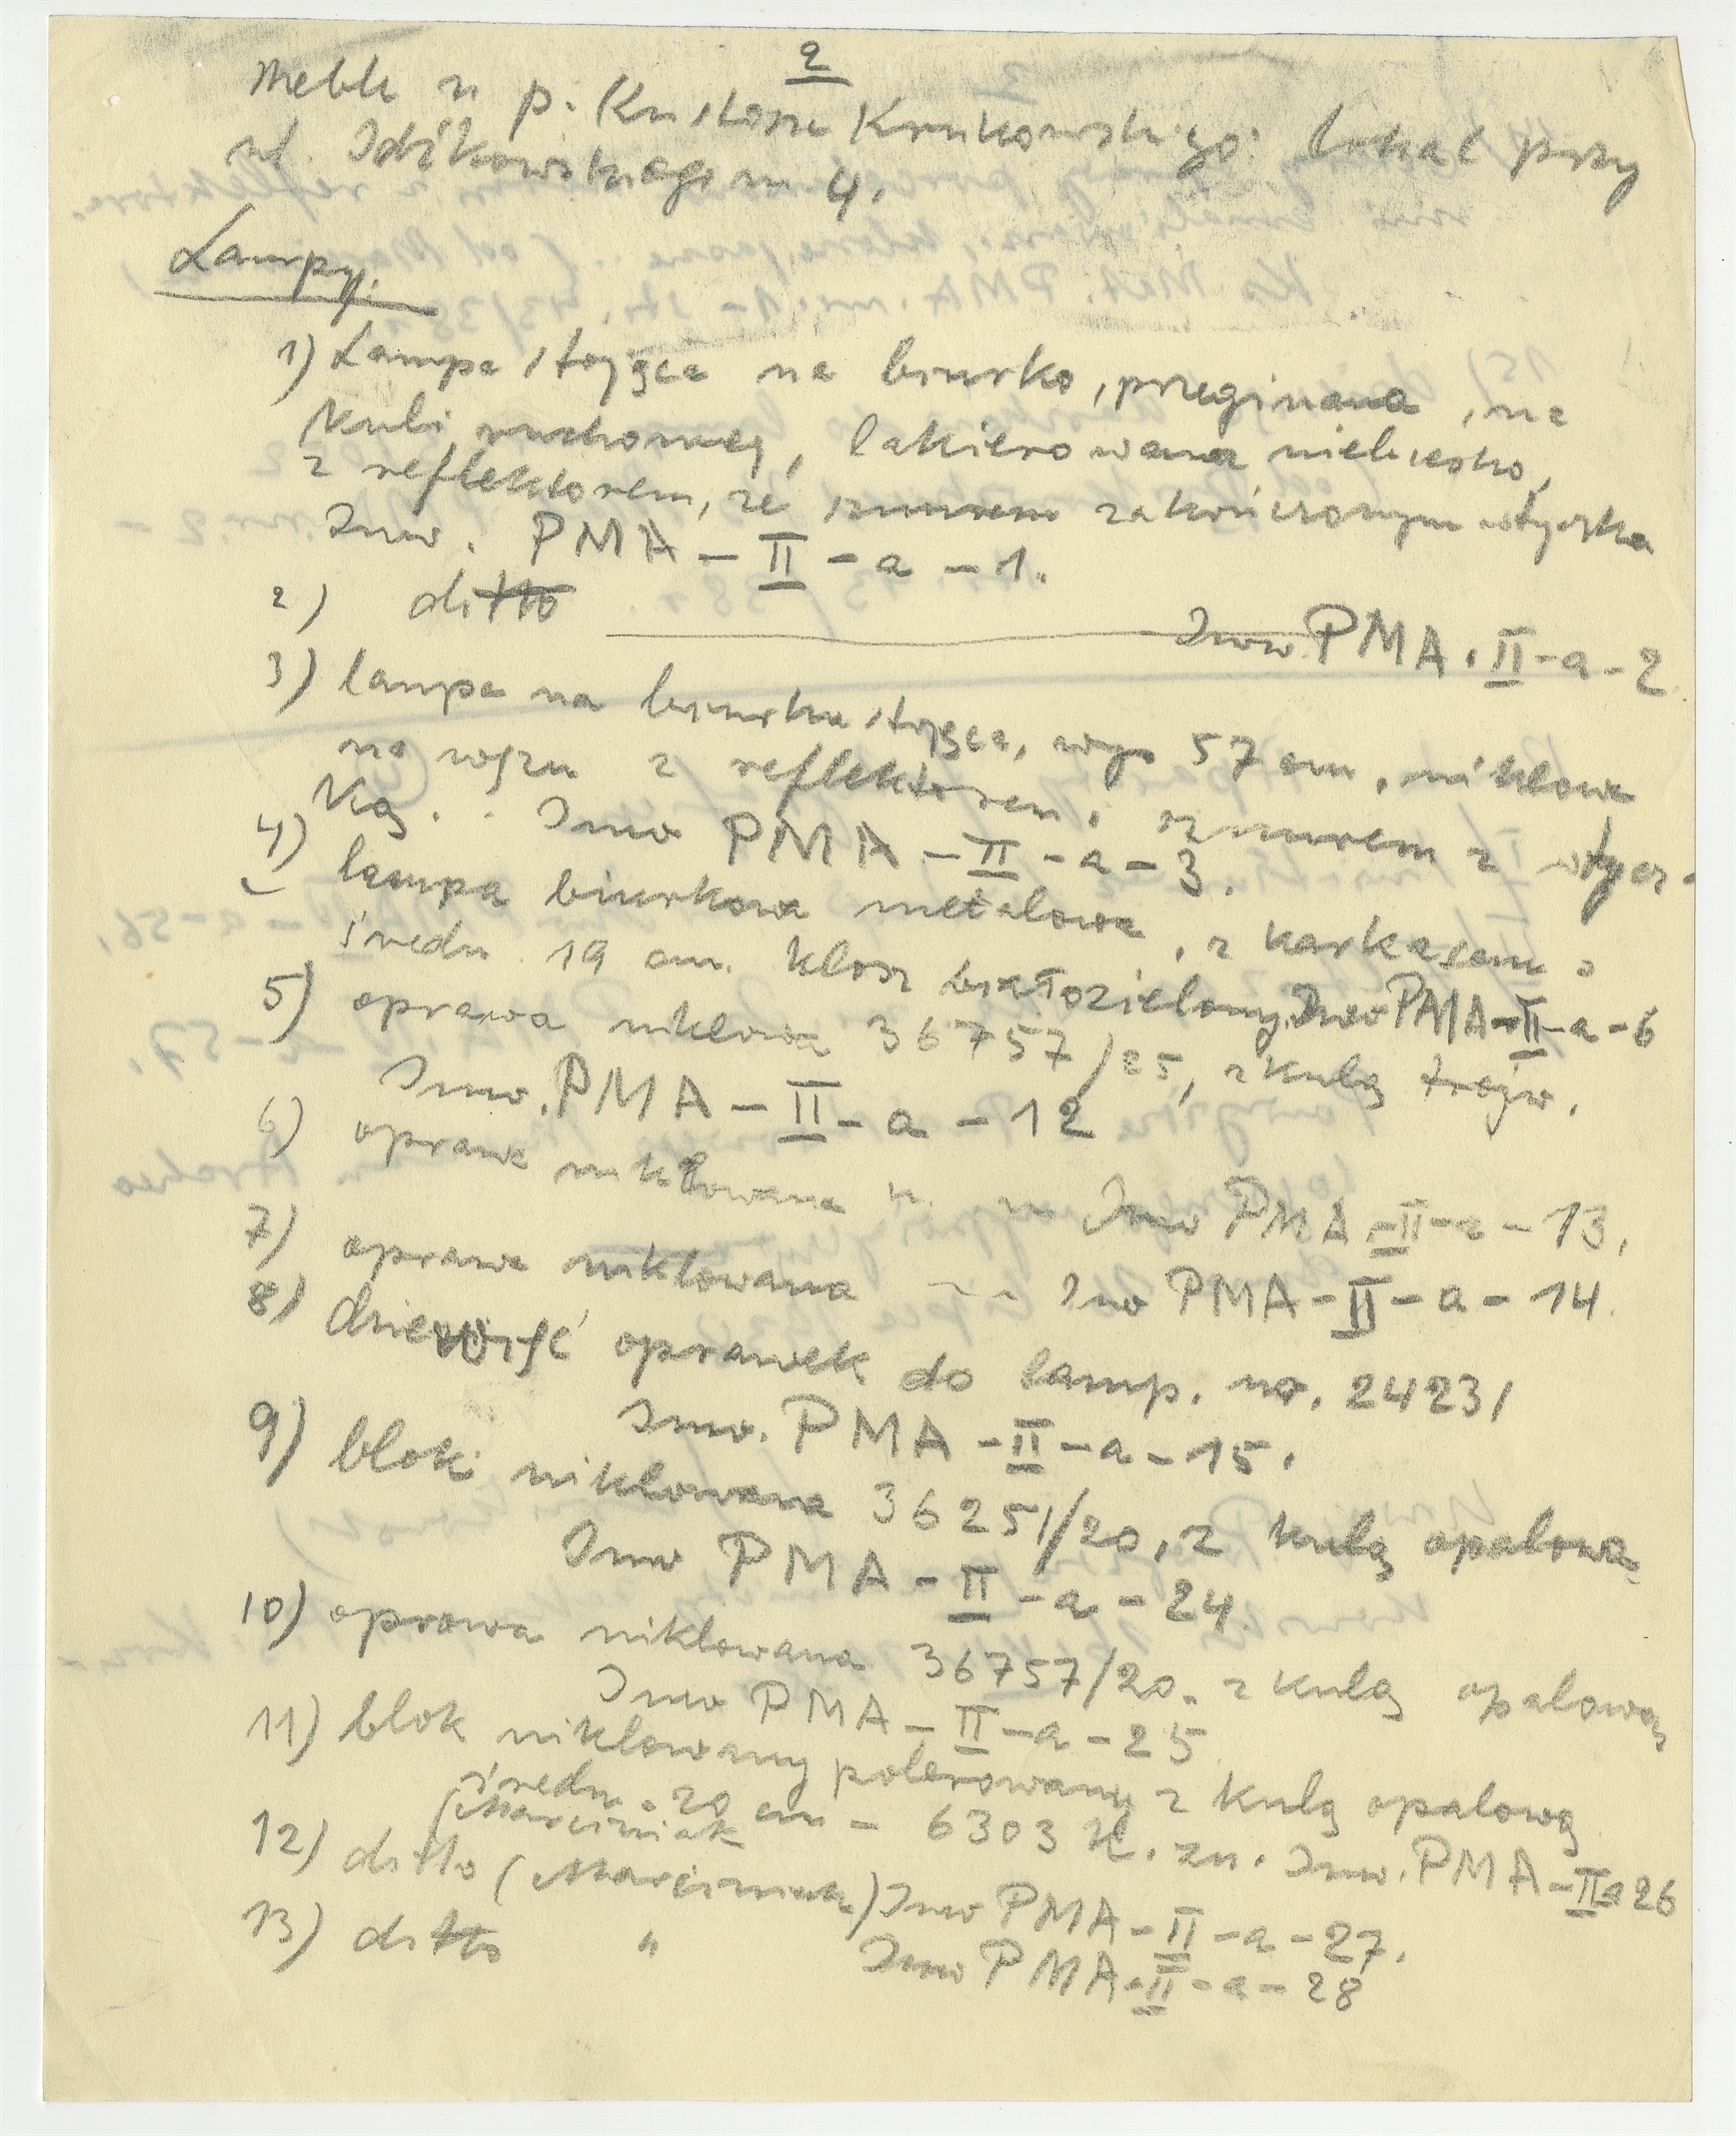 2
Meble u p. Kustosza Krukowskiego: lokal przy
ul. Idźkowskiego m 4.
Lampy.
1) Lampa stojąca na biurko, przeginana, na
kuli ruchomej, lakierowana niebiesko,
z reflektorem, ze sznurem zakończonym wtyczką
Inw. PMA – II – a – 1.
2) ditto Inw. PMA. II – a – 2
3) lampa na biurku stojąca, wys 57 cm, niklowa
na wężu z reflektorem i sznurem z wtycz-
ką. Inw PMA – II – a – 3.
4) lampa biurkowa metalowa, z karkasem o
średn. 19 cm. klosz białozielony. Inw PMA – II – a – 6
5) oprawa niklowa 36757/25, z kulą trójw.
Inw. PMA – II – a – 12
6) oprawa niklowana " " Inw PMA – II – a – 13.
7) oprawa niklowana Inw PMA – II – a – 14.
8) dziewięć oprawek do lamp. nr. 24231
Inw. PMA – II – a – 15.
9) blok niklowana 36251/20, z kulą opalową
Inw PMA – II – a – 24
10) oprawa niklowana 36757/20. z kulą opalową
Inw PMA – II – a – 25
11) blok niklowany polerowany z kulą opalową
średn. 20 cm – 6303 zn. Inw. PMA – II a 26
(Marciniak
12) ditto (Marciniak) Inw PMA – II – a – 27.
13) ditto " Inw PMA. II – a – 28